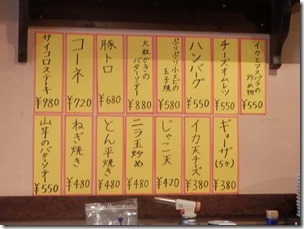 イカとアスパラの炒め物
¥550
チーズオムレツ
¥550
ハンバーグ
¥550
ぷりぷり小エビの玉子焼
¥580
大粒かきのバターソテー
¥880
豚トロ
¥680
コーネ
¥720
サイコロステーキ
¥980
ギョーザ(5ケ)
¥380
イカ天チーズ
¥380
じゃこ天
¥420
ニラ玉炒め
¥480
とん平焼き
¥480
ねぎ焼き
¥480
山芋のバタソテー
¥550